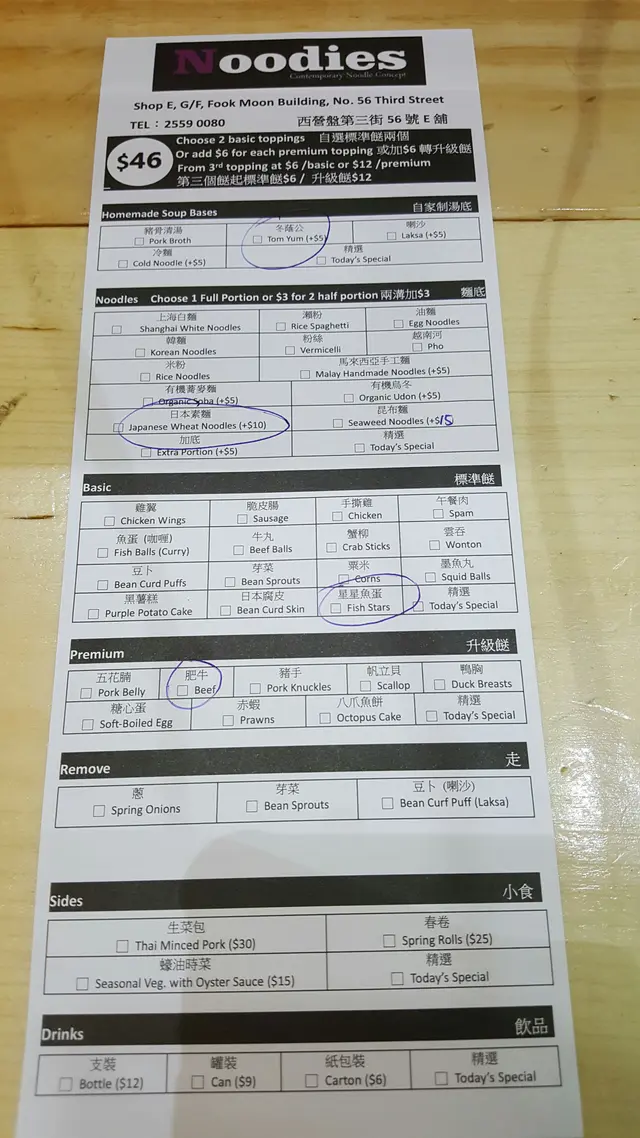 Noodies
Contemporary Noodle Concept
Shop E, G/F, Fook Moon Building, No. 56 Third Street
TEL：2559 0080 西營盤第三街 56 號 E 舖
$46
Choose 2 basic toppings 自選標準餸兩個
Or add $6 for each premium topping 或加$6 轉升級餸
From 3rd topping at $6 /basic or $12 /premium
第三個餸起標準餸$6 / 升級餸$12
Homemade Soup Bases 自家制湯底
豬骨清湯 冬蔭公 喇沙
Pork Broth Tom Yum (+$5) Laksa (+$5)
冷麵 精選
Cold Noodle (+$5) Today's Special
Noodles Choose 1 Full Portion or $3 for 2 half portion 兩溝加$3 麵底
上海白麵 瀨粉 油麵
Shanghai White Noodles Rice Spaghetti Egg Noodles
韓麵 粉絲 越南河
Korean Noodles Vermicelli Pho
米粉 馬來西亞手工麵
Rice Noodles Malay Handmade Noodles (+$5)
有機蕎麥麵 有機烏冬
Organic Soba (+$5) Organic Udon (+$5)
日本素麵 昆布麵
Japanese Wheat Noodles (+$10) Seaweed Noodles (+$15
加底 精選
Extra Portion (+$5) Today's Special
Basic 標準餸
雞翼 脆皮腸 手撕雞 午餐肉
Chicken Wings Sausage Chicken Spam
魚蛋 (咖喱) 牛丸 蟹柳 雲吞
Fish Balls (Curry) Beef Balls Crab Sticks Wonton
豆卜 芽菜 粟米 墨魚丸
Bean Curd Puffs Bean Sprouts Corns Squid Balls
黑薯糕 日本腐皮 星星魚蛋 精選
Purple Potato Cake Bean Curd Skin Fish Stars Today's Special
Premium 升級餸
五花腩 肥牛 豬手 帆立貝 鴨胸
Pork Belly Beef Pork Knuckles Scallop Duck Breasts
糖心蛋 赤蝦 八爪魚餅 精選
Soft-Boiled Egg Prawns Octopus Cake Today's Special
Remove 走
蔥 芽菜 豆卜 (喇沙)
Spring Onions Bean Sprouts Bean Curf Puff (Laksa)
Sides 小食
生菜包 春卷
Thai Minced Pork ($30) Spring Rolls ($25)
蠔油時菜 精選
Seasonal Veg. with Oyster Sauce ($15) Today's Special
Drinks 飲品
支裝 罐裝 纸包裝 精選
Bottle ($12) Can ($9) Carton ($6) Today's Special